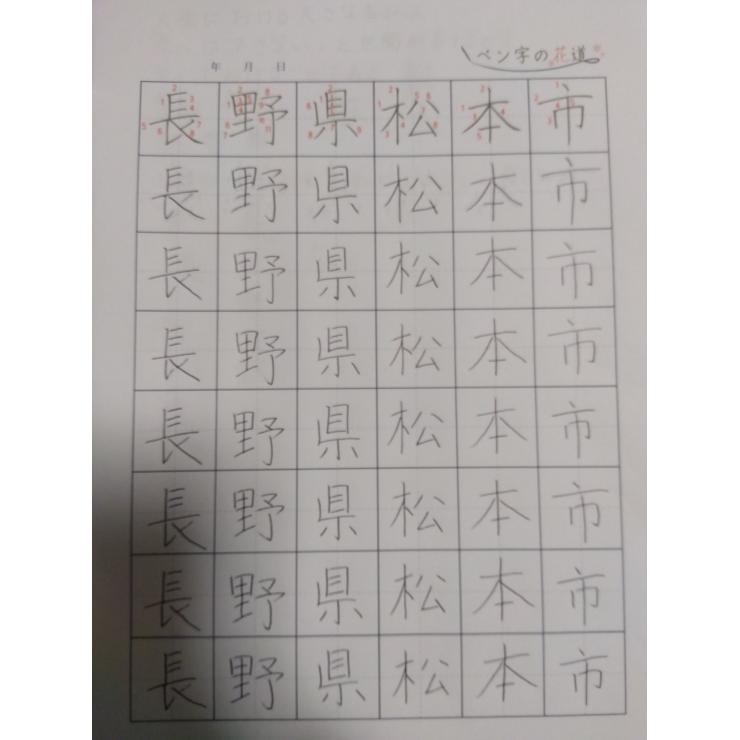 ペン字の花道
年 月 日
長野県松本市
長野県松本市
長野県松本市
長野県松本市
長野県松本市
長野県松本市
長野県松本市
長野県松本市